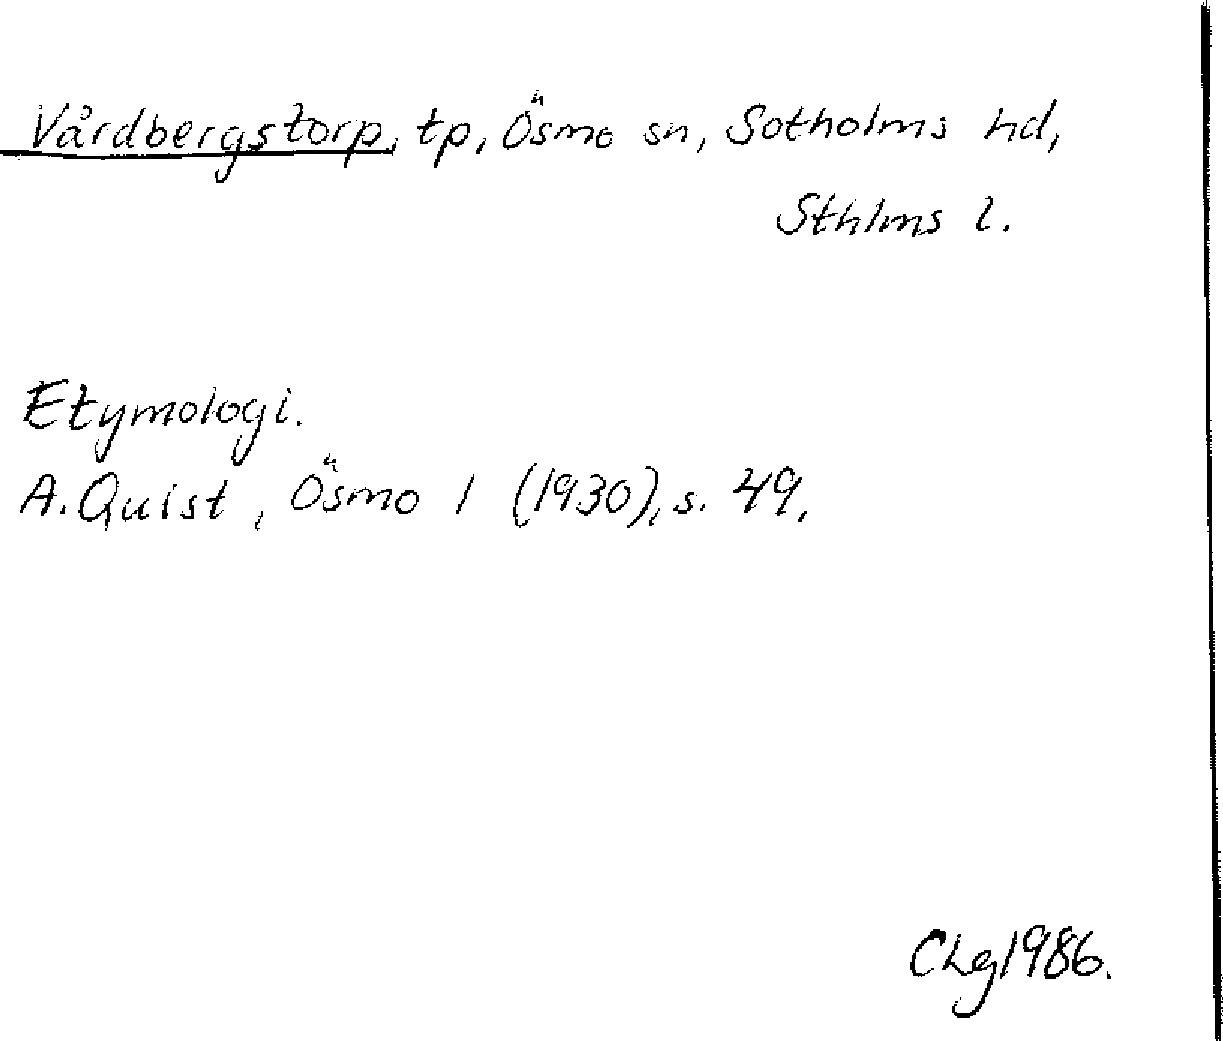 Vårdbergstorp, tp, Ösmo sn, Sotholms hd,
Sthlms l.
Etymologi.
A. Quist, Ösmo 1 (1930), s. 49.
CLg 1986.